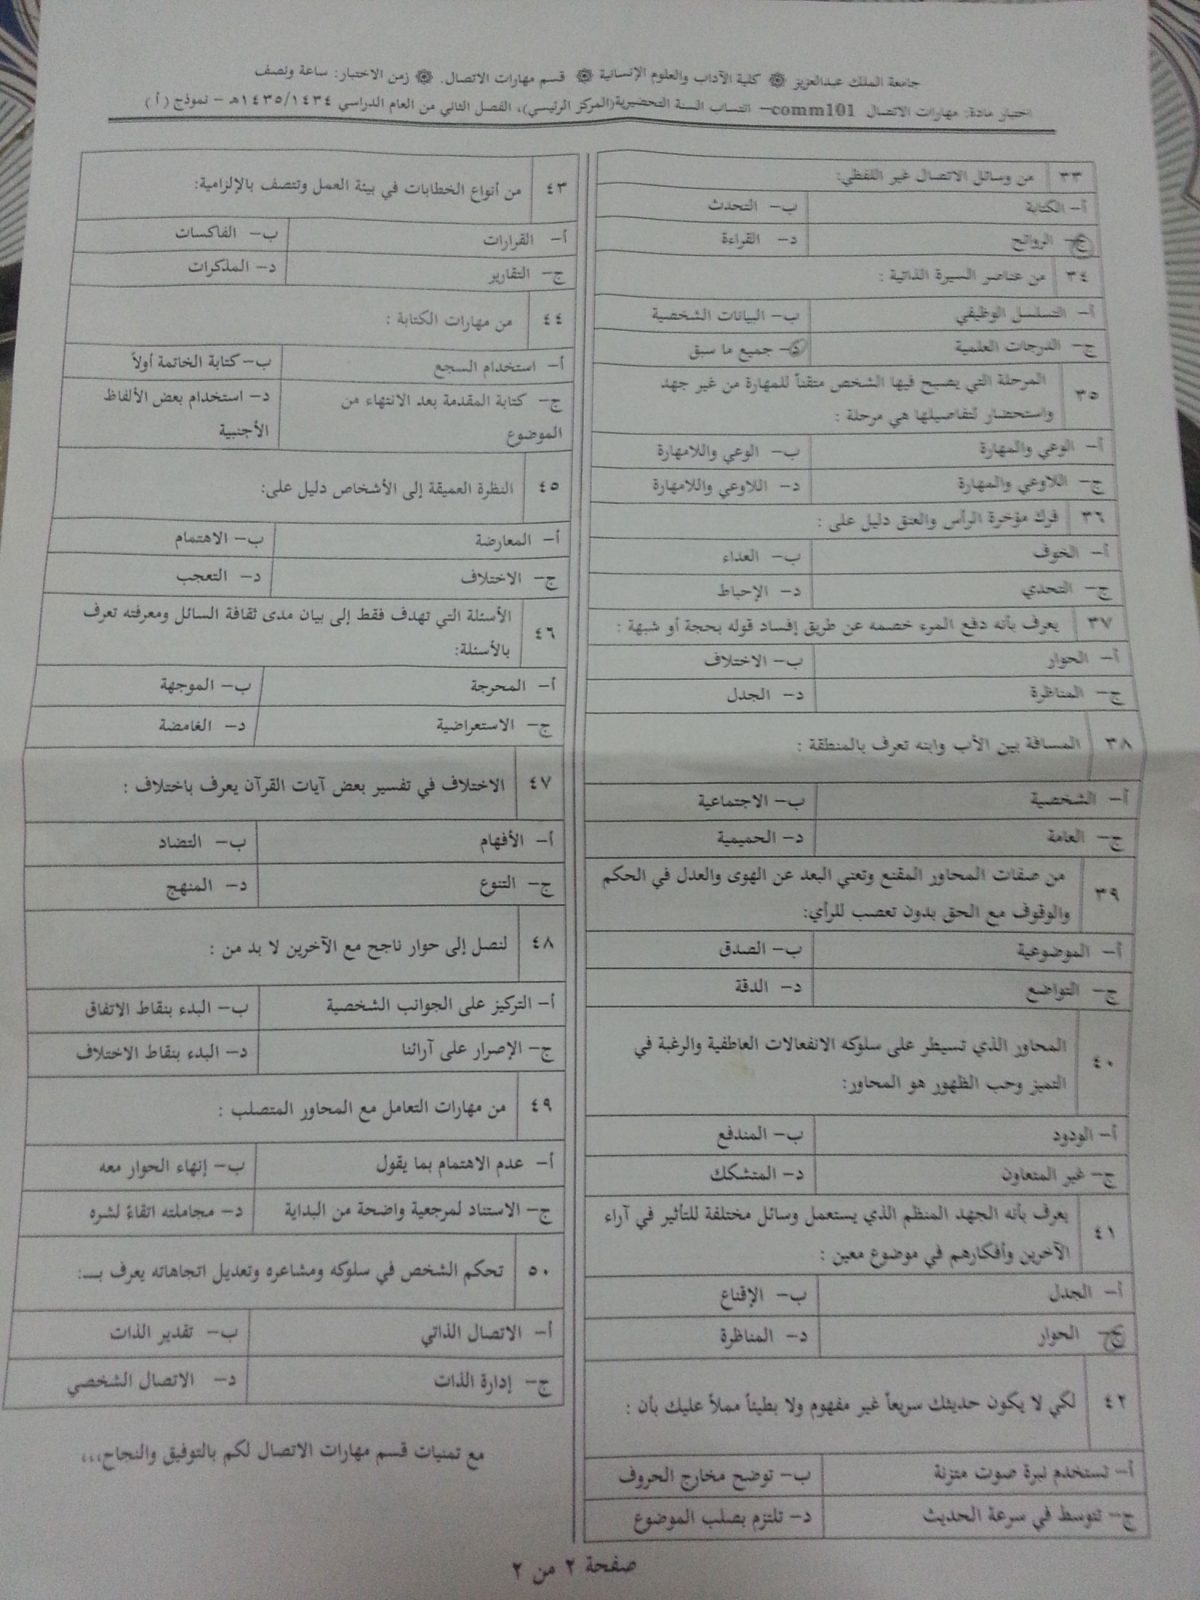 جامعة الملك عبدالعزيز ۞ كلية الآداب والعلوم الإنسانية ۞ قسم مهارات الاتصال. ۞ زمن الاختبار: ساعة ونصف
اختبار مادة: مهارات الاتصال comm101– انتساب السنة التحضيرية(المركز الرئيسي)، الفصل الثاني من العام الدراسي ١٤٣٥/١٤٣٤هـ – نموذج ( أ )
٣٣ من وسائل الاتصال غير اللفظي:
أ– الكتابة ب– التحدث
ج– الروائح د– القراءة
٣٤ من عناصر السيرة الذاتية :
أ– التسلسل الوظيفي ب– البيانات الشخصية
ج– الدرجات العلمية د– جميع ما سبق
٣٥ المرحلة التي يصبح فيها الشخص متقناً للمهارة من غير جهد
واستحضار لتفاصيلها هي مرحلة :
أ– الوعي والمهارة ب– الوعي واللامهارة
ج– اللاوعي والمهارة د– اللاوعي واللامهارة
٣٦ فرك مؤخرة الرأس والعنق دليل على :
أ– الخوف ب– العداء
ج– التحدي د– الإحباط
٣٧ يعرف بأنه دفع المرء خصمه عن طريق إفساد قوله بحجة أو شبهة :
أ– الحوار ب– الاختلاف
ج– المناظرة د– الجدل
٣٨ المسافة بين الأب وابنه تعرف بالمنطقة :
أ– الشخصية ب– الاجتماعية
ج– العامة د– الحميمية
٣٩ من صفات المحاور المقنع وتعني البعد عن الهوى والعدل في الحكم
والوقوف مع الحق بدون تعصب للرأي:
أ– الموضوعية ب– الصدق
ج– التواضع د– الدقة
٤٠ المحاور الذي تسيطر على سلوكه الانفعالات العاطفية والرغبة في
التميز وحب الظهور هو المحاور:
أ– الودود ب– المندفع
ج– غير المتعاون د– المتشكك
٤١ يعرف بأنه الجهد المنظم الذي يستعمل وسائل مختلفة للتأثير في آراء
الآخرين وأفكارهم في موضوع معين :
أ– الجدل ب– الإقناع
ج– الحوار د– المناظرة
٤٢ لكي لا يكون حديثك سريعاً غير مفهوم ولا بطيئاً مملاً عليك بأن :
أ– تستخدم نبرة صوت متزنة ب– توضح مخارج الحروف
ج– تتوسط في سرعة الحديث د– تلتزم بصلب الموضوع
٤٣ من أنواع الخطابات في بيئة العمل وتتصف بالإلزامية:
أ– القرارات ب– الفاكسات
ج– التقارير د– المذكرات
٤٤ من مهارات الكتابة :
أ– استخدام السجع ب– كتابة الخاتمة أولاً
ج– كتابة المقدمة بعد الانتهاء من د– استخدام بعض الألفاظ
الموضوع الأجنبية
٤٥ النظرة العميقة إلى الأشخاص دليل على:
أ– المعارضة ب– الاهتمام
ج– الاختلاف د– التعجب
٤٦ الأسئلة التي تهدف فقط إلى بيان مدى ثقافة السائل ومعرفته تعرف
بالأسئلة:
أ– المحرجة ب– الموجهة
ج– الاستعراضية د– الغامضة
٤٧ الاختلاف في تفسير بعض آيات القرآن يعرف باختلاف :
أ– الأفهام ب– التضاد
ج– التنوع د– المنهج
٤٨ لنصل إلى حوار ناجح مع الآخرين لا بد من :
أ– التركيز على الجوانب الشخصية ب– البدء بنقاط الاتفاق
ج– الإصرار على آرائنا د– البدء بنقاط الاختلاف
٤٩ من مهارات التعامل مع المحاور المتصلب :
أ– عدم الاهتمام بما يقول ب– إنهاء الحوار معه
ج– الاستناد لمرجعية واضحة من البداية د– مجاملته اتقاءً لشره
٥٠ تحكم الشخص في سلوكه ومشاعره وتعديل اتجاهاته يعرف بــ:
أ– الاتصال الذاتي ب– تقدير الذات
ج– إدارة الذات د– الاتصال الشخصي
مع تمنيات قسم مهارات الاتصال لكم بالتوفيق والنجاح،،،
صفحة ٢ من ٢